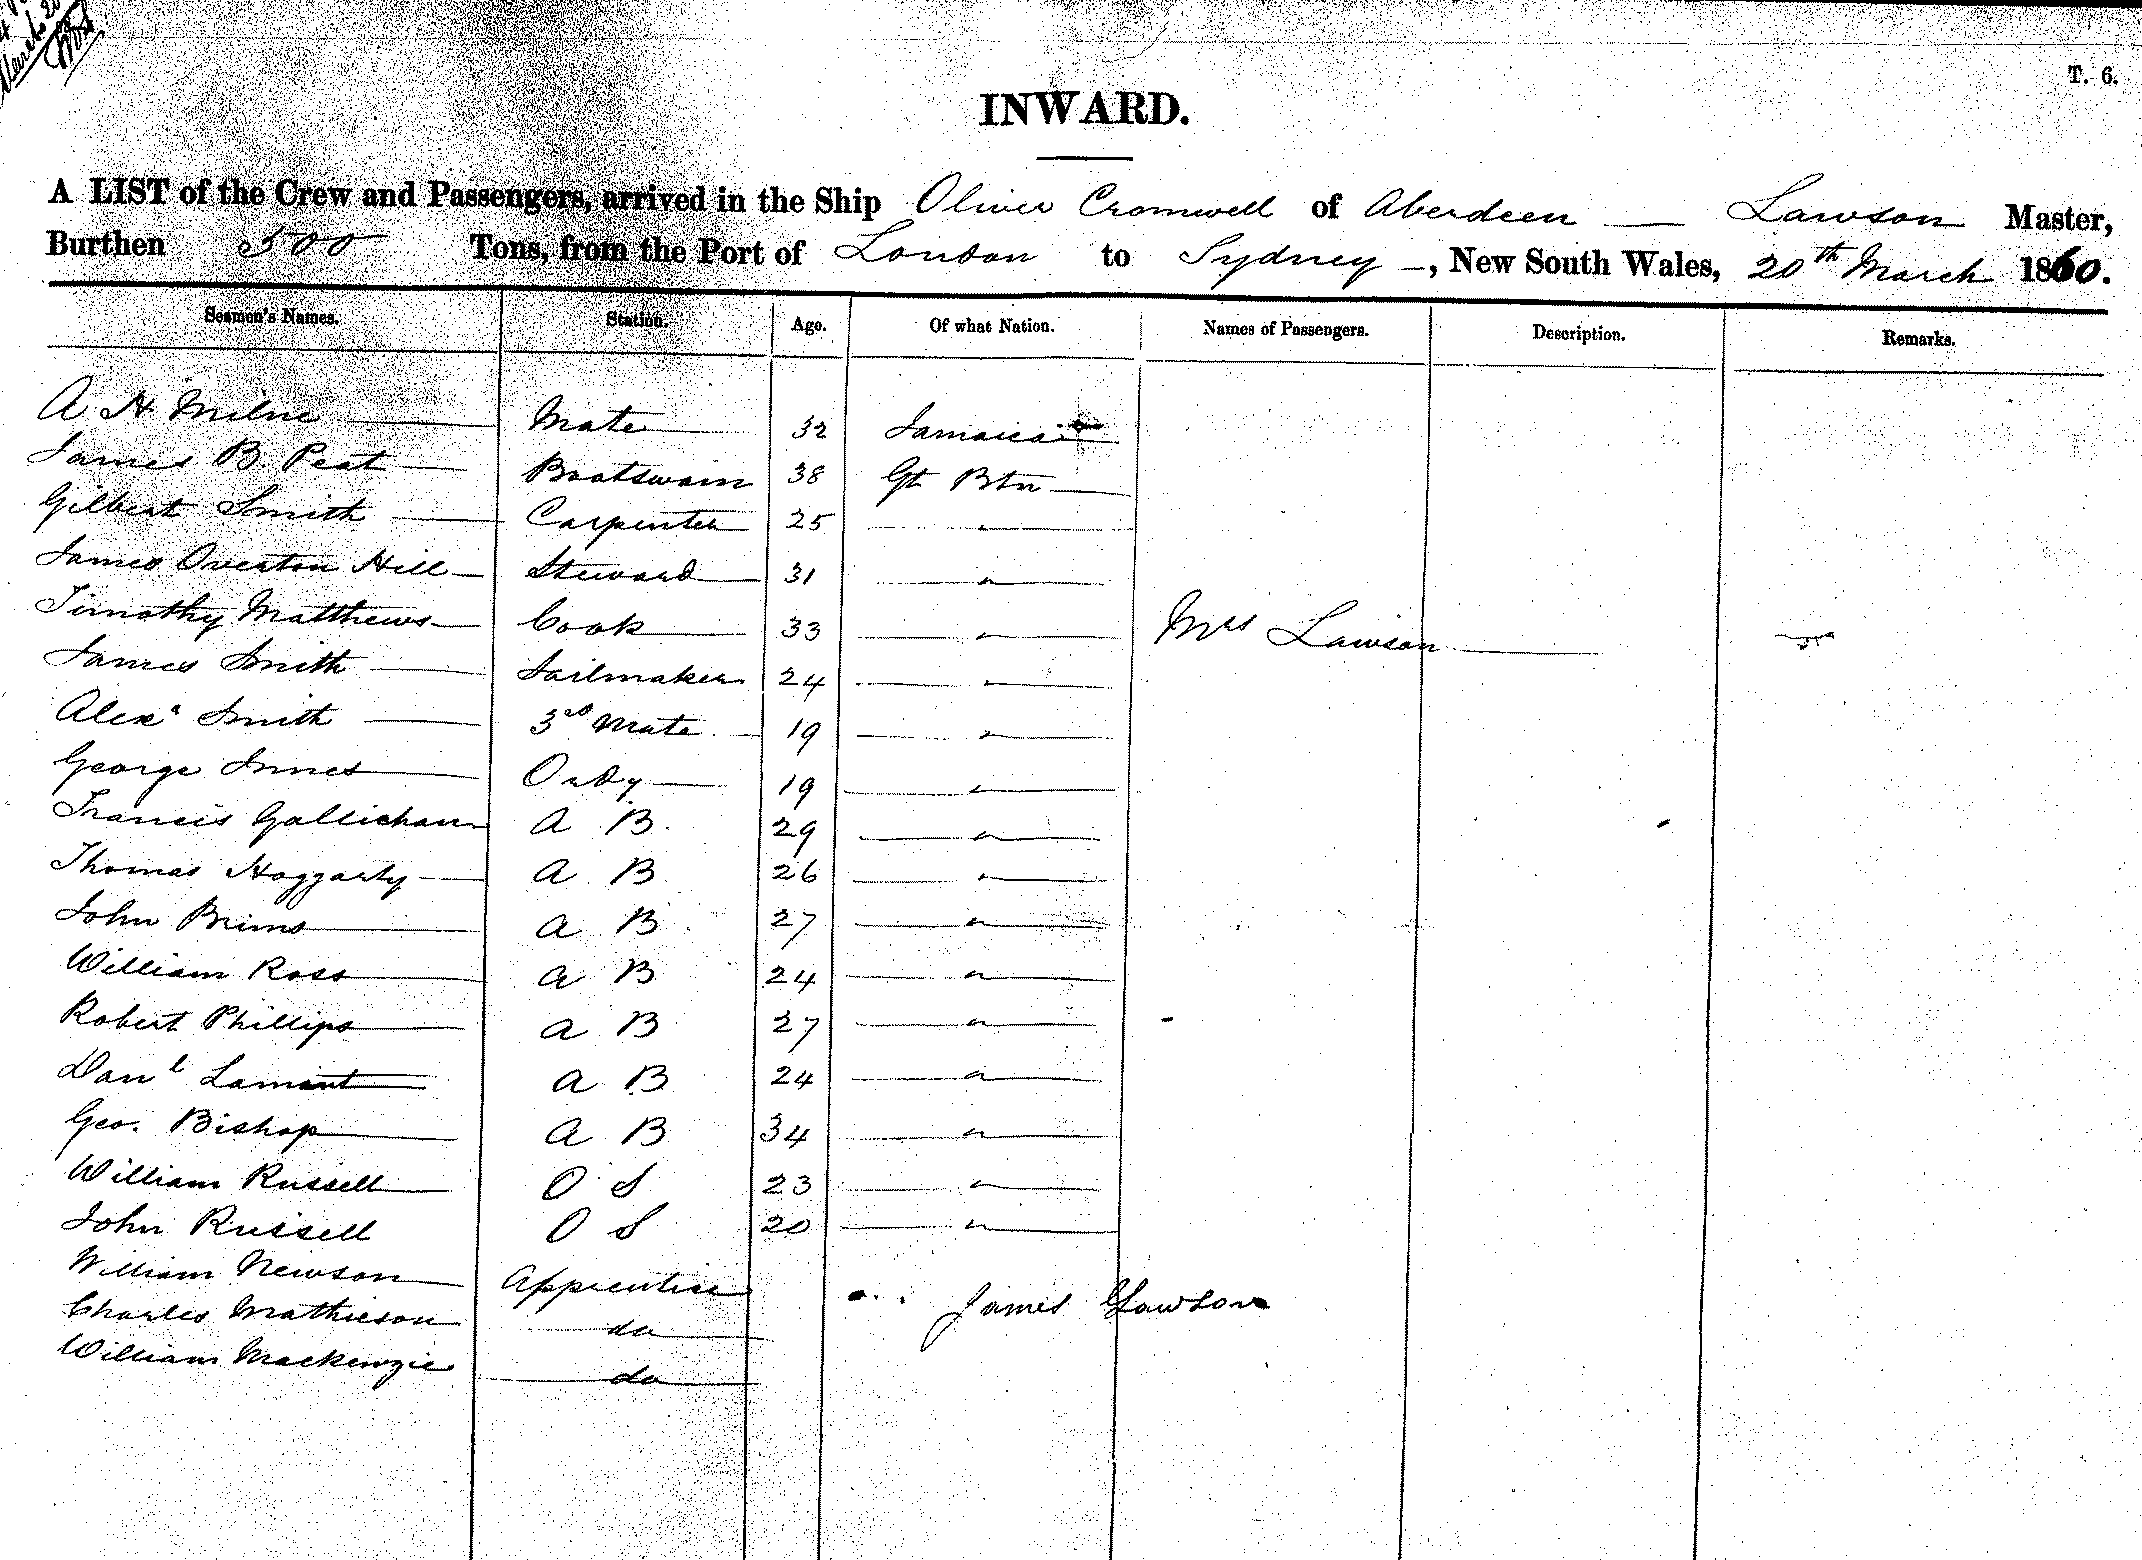 T. 6.
INWARD.
A LIST of the Crew and Passengers, arrived in the Ship Oliver Cromwell of Aberdeen — Lawson Master,
Burthen 500 Tons, from the Port of London to Sydney —, New South Wales, 20th March 1860.
Seamen's Names. Station. Age. Of what Nation. Names of Passengers. Description. Remarks.
A H Milne Mate 32 Jamaica
James B. Peat Boatswain 38 Gt Btn
Gilbert Smith Carpenter 25 "
James Overton Hill Steward 31 "
Timothy Matthews Cook 33 " Mrs Lawson
James Smith Sailmaker 24 "
Alexr Smith 3rd Mate 19 "
George Innes Ordy 19 "
Francis Gallichan A B. 29 "
Thomas Hoggarty A B 26 "
John Brims A B 27 "
William Ross A B 24 "
Robert Phillips A B 27 "
Danl Lamont A B 24 "
Geo. Bishop A B 34 "
William Russell O S 23 "
John Russell O S 20 "
William Newson Apprentice
James Lawson
Charles Mathieson do
William Mackenzie do